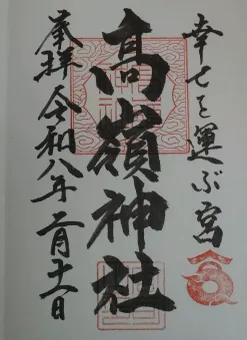 幸せを運ぶ宮
高嶺神社
奉拝 令和八年 二月十一日